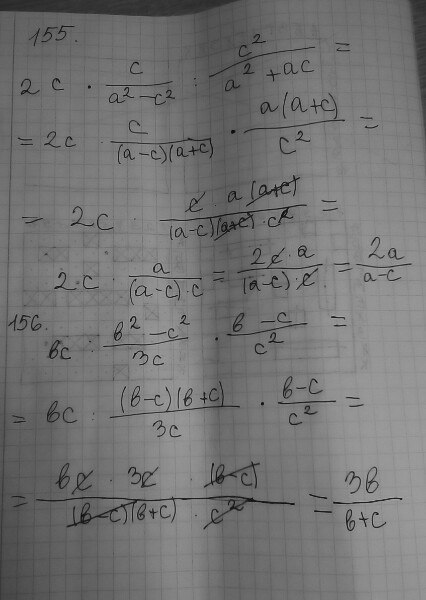 155.
2c · c/(a² - c²) : c²/(a² + ac) =
= 2c · c/((a-c)(a+c)) · a(a+c)/c² =
= 2c · (c · a(a+c))/((a-c)(a+c) · c²) =
2c · a/((a-c) · c) = (2c · a)/((a-c) · c) = 2a/(a-c)
156.
вc : (в² - c²)/3c · (в - c)/c² =
= вc : ((в-c)(в+c))/3c · (в-c)/c² =
= (вc · 3c · (в-c))/((в-c)(в+c) · c²) = 3в/(в+c)